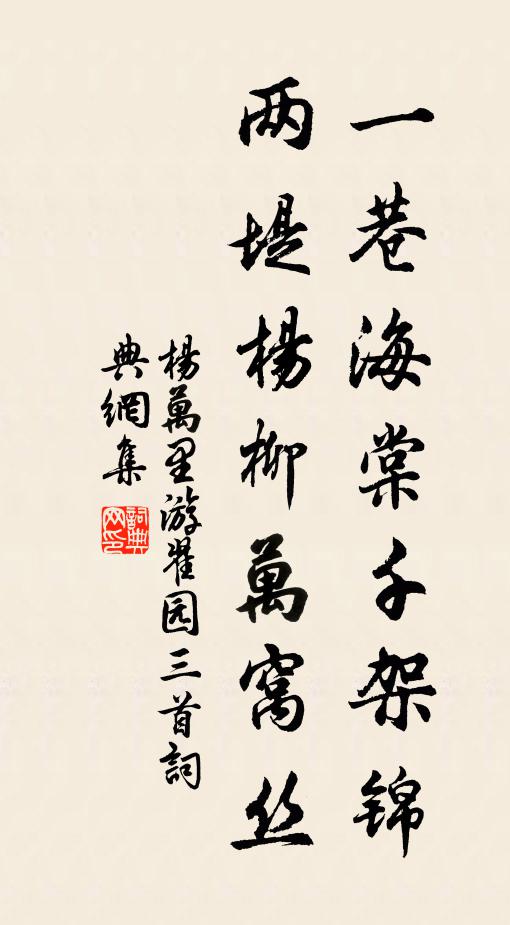 一巷海棠千架锦
两堤杨柳萬窝丝
杨萬里游翟园三首詞
典網集
詞典
网印